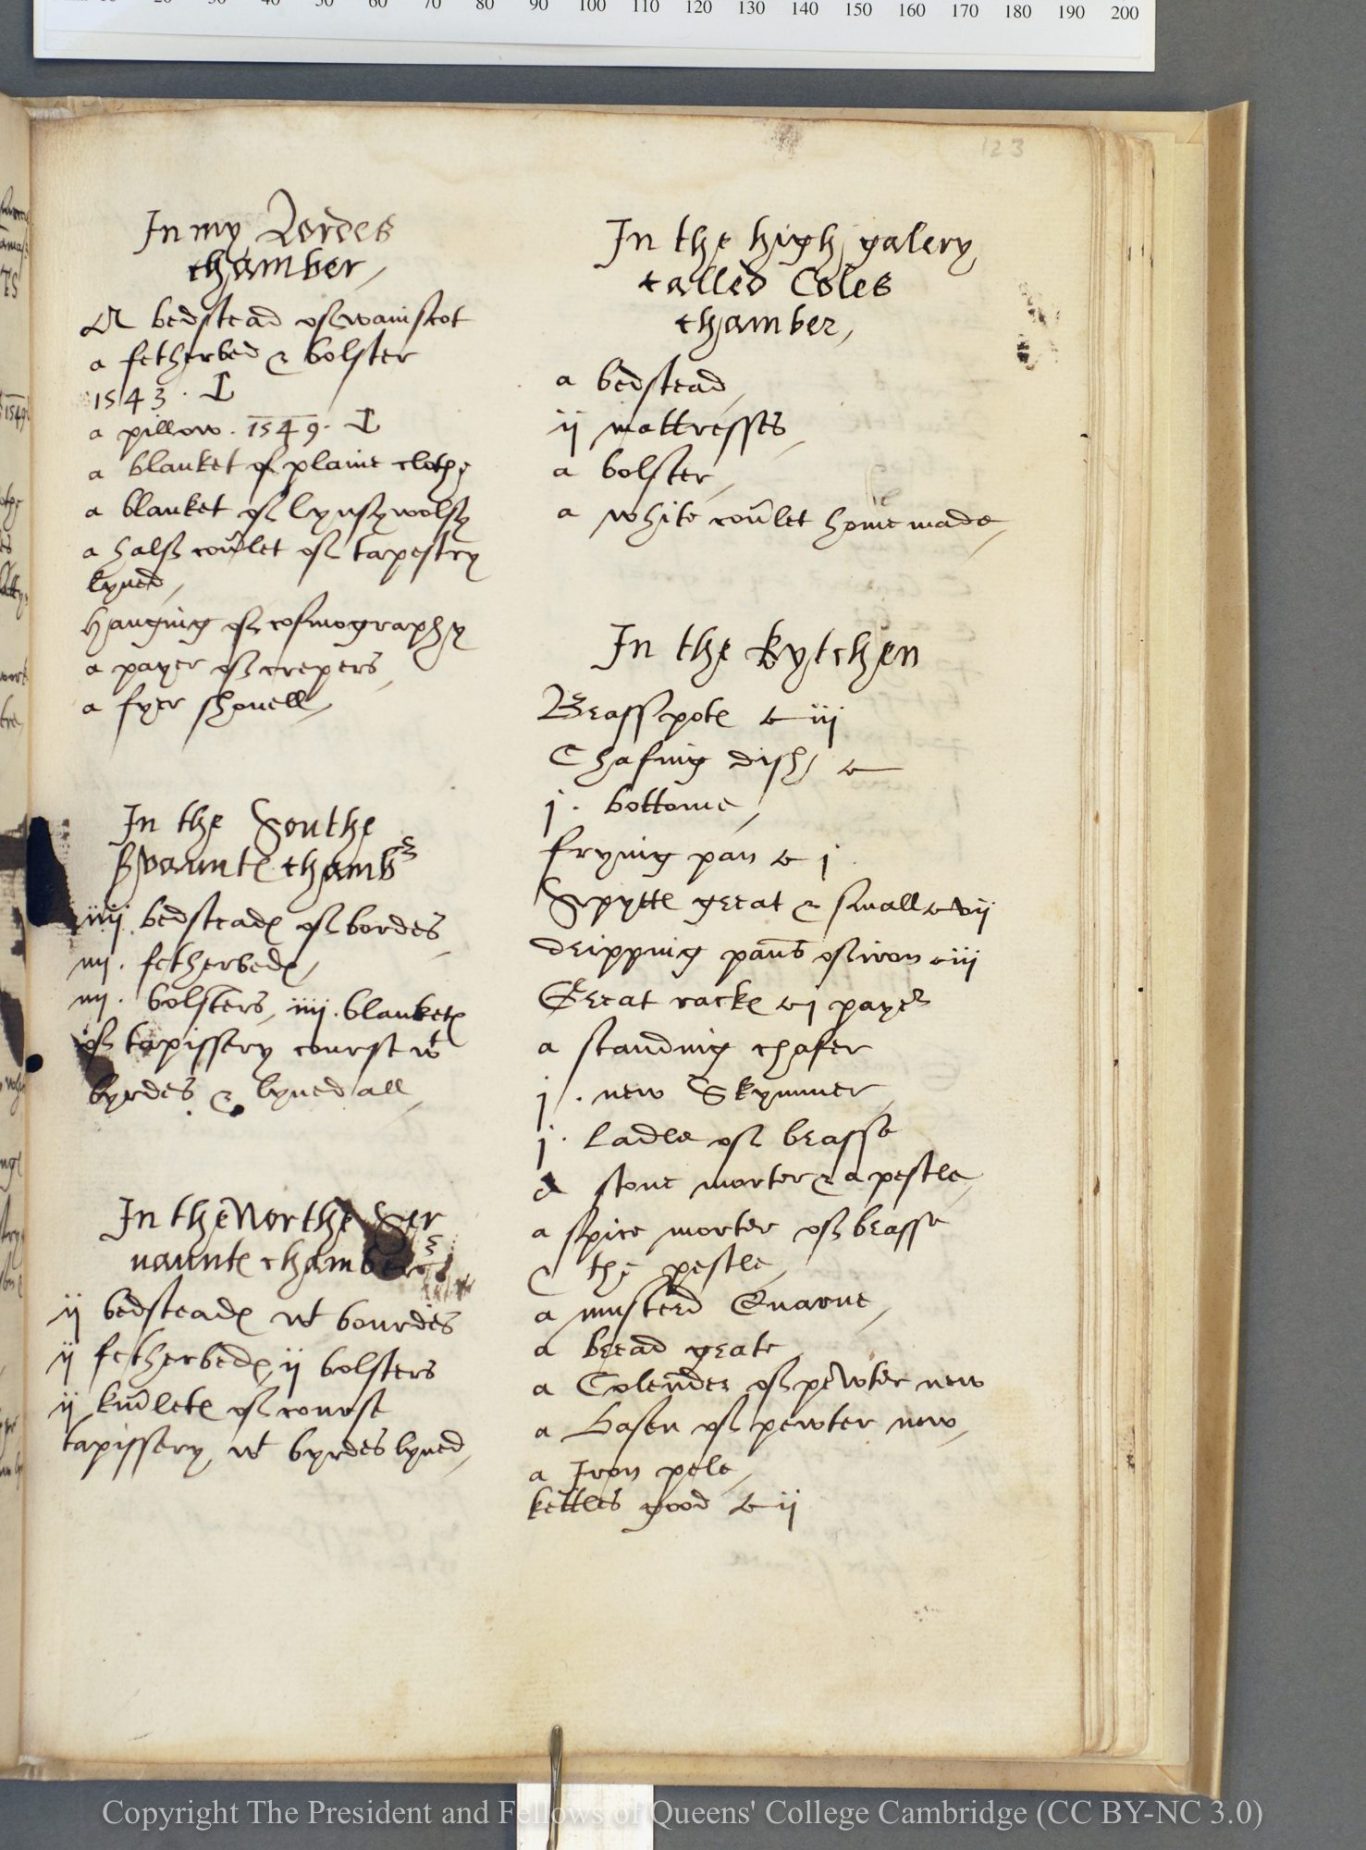 20 30 40 50 60 70 80 90 100 110 120 130 140 150 160 170 180 190 200
123
In my Lordes
chamber,
A bedstead of wainscot
a fetherbed & bolster
1543 · I
a pillow · 1549 · I
a blanket of plaine clothe
a blanket of lynsywolsy
a half cov̄let of tapestry
lyned,
Hanging of cosmography
a payer of crepers,
a fyer shouell,
In the Southe
s̛vaunt℮ chamb℮
iiij bedstead℮ of bordes,
iiij · fetherbed℮,
iiij · bolsters, iiij · blanket℮
of tapissery course wt
byrdes & lyned all,
In the Northe Ser
uaunt℮ chamber
ij bedstead℮ wt bourdes
ij fetherbed℮, ij bolsters
ij kuv̄let℮ of course
tapissery wt byrdes lyned,
In the high galery
called Coles
chamber,
a bedstead,
ij mattresses,
a bolster,
a white cov̄let home made,
In the kytchen
Brasspot℮ iij
Chafing dish
j · bottome,
frying pan j
Spytt℮ great & small vij
dripping pans of iron iij
Great rack℮ j payer
a standing chafer
j · new Skymmer,
j · ladle of brasse
a stone morter & a pestle,
a spice morter of brasse
& the pestle,
a musterd Quarne,
a bread grate,
a Colender of pewter new
a basen of pewter new,
a Iron pele,
kettles good ij
Copyright The President and Fellows of Queens' College Cambridge (CC BY-NC 3.0)